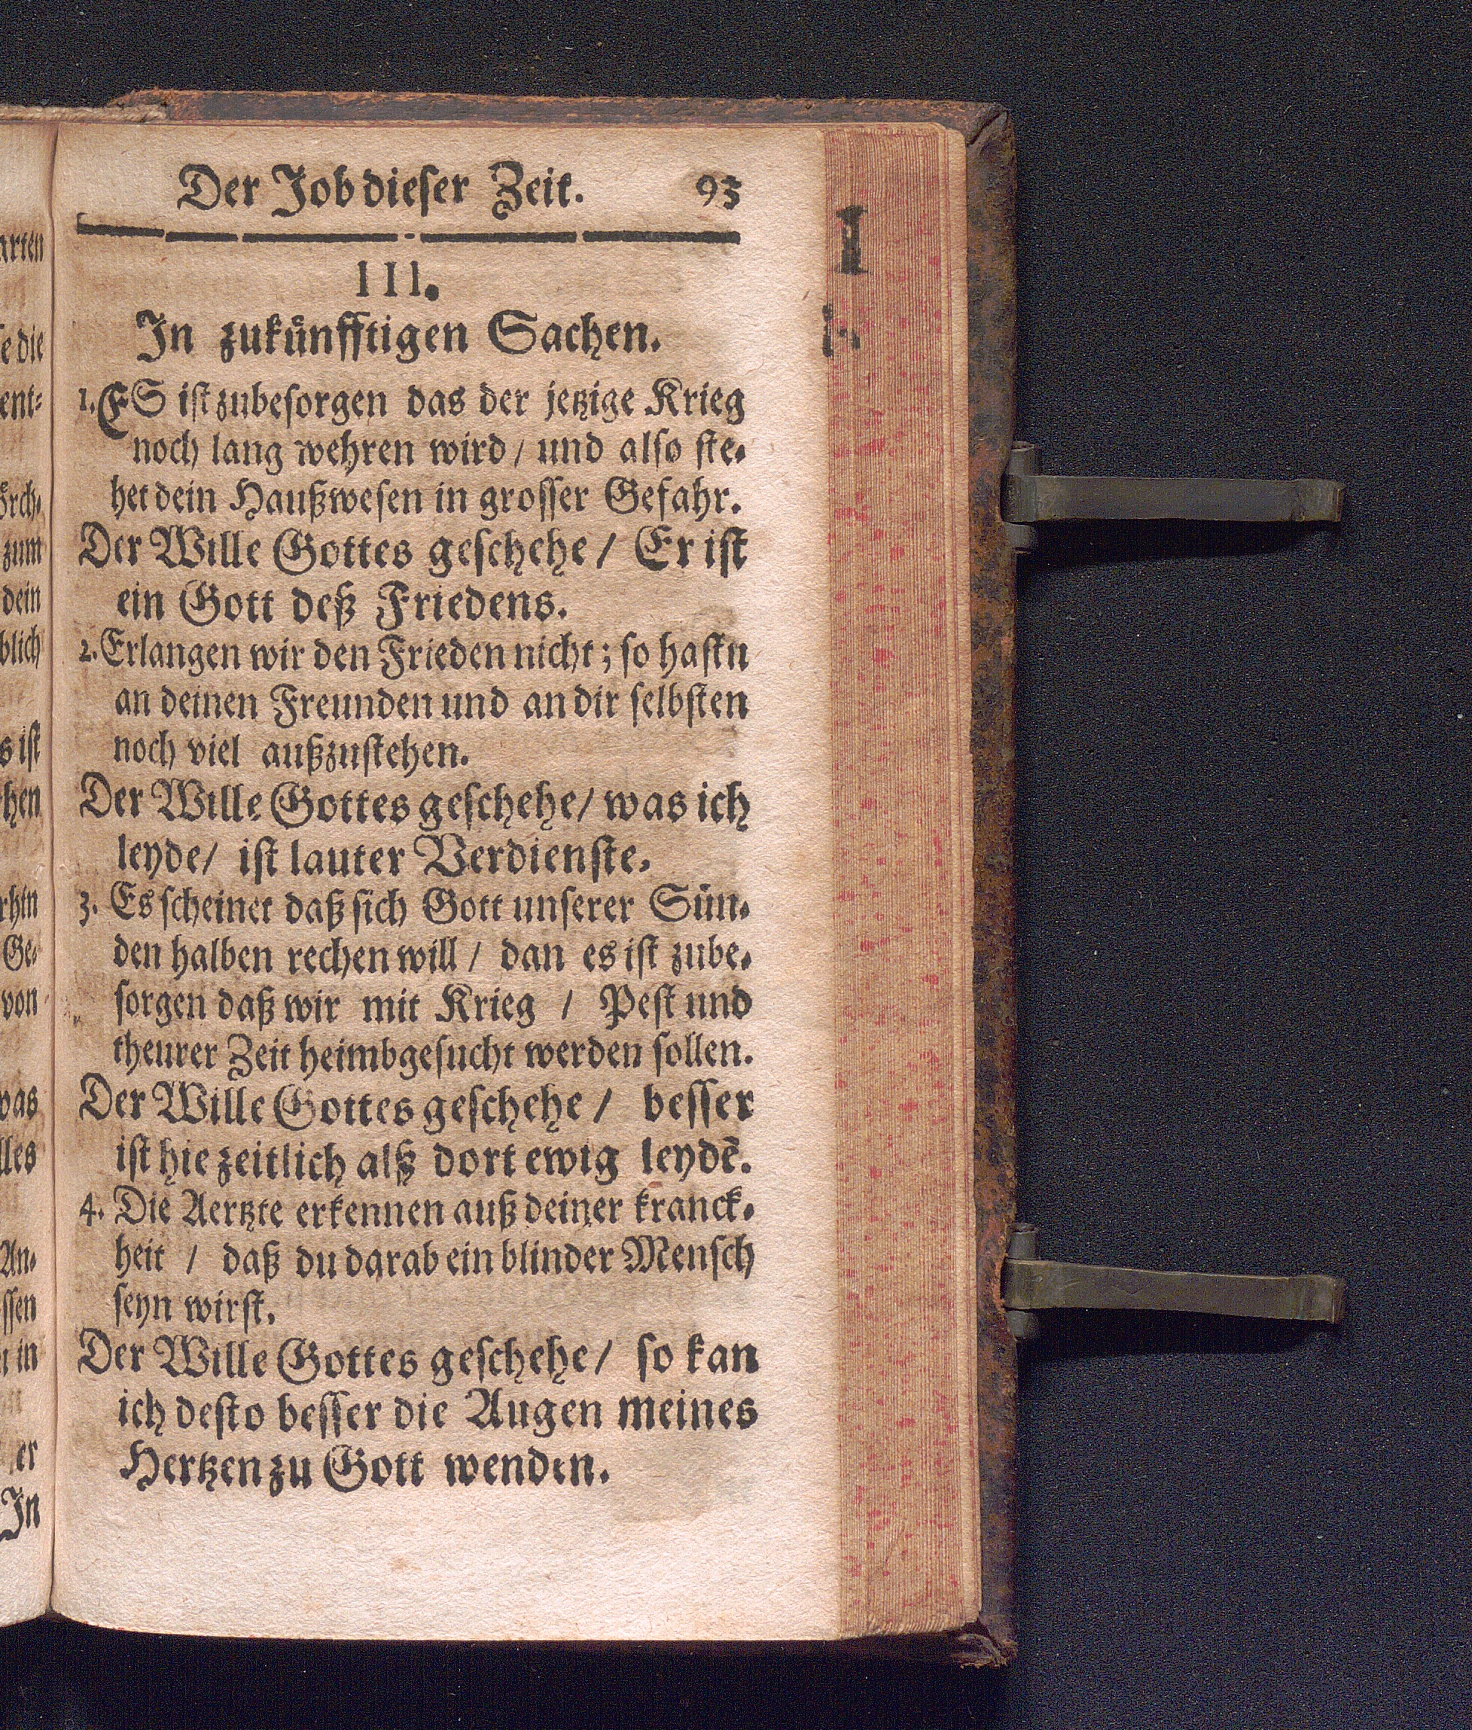 Der Job dieser Zeit. 93
III.
In zukünfftigen Sachen.
1. ES ist zubesorgen das der jetzige Krieg
noch lang wehren wird / und also ste-
het dein Haußwesen in grosser Gefahr.
Der Wille Gottes geschehe / Er ist
ein Gott deß Friedens.
2. Erlangen wir den Frieden nicht; so hastu
an deinen Freunden und an dir selbsten
noch viel außzustehen.
Der Wille Gottes geschehe / was ich
leyde / ist lauter Verdienste.
3. Es scheinet daß sich Gott unserer Sün-
den halben rechen will / dan es ist zube-
sorgen daß wir mit Krieg / Pest und
theurer Zeit heimbgesucht werden sollen.
Der Wille Gottes geschehe / besser
ist hie zeitlich alß dort ewig leydẽ.
4. Die Aertzte erkennen auß deiner kranck-
heit / daß du darab ein blinder Mensch
seyn wirst.
Der Wille Gottes geschehe / so kan
ich desto besser die Augen meines
Hertzen zu Gott wenden.